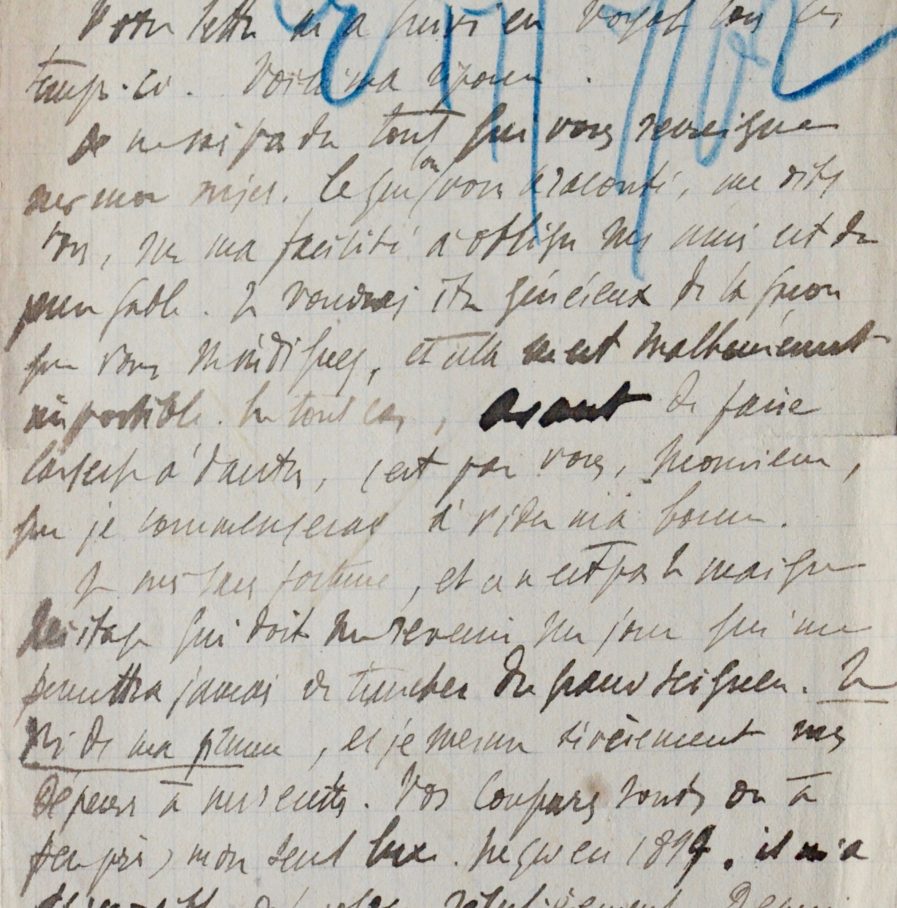 Votre lettre m'a suivi en voyage tous ces
temps-ci. Voici ma réponse.
Je ne sais pas du tout qui vous renseigne
sur mon sujet. Ce qu'on vous a raconté, me dites
vous, sur ma facilité à obliger mes amis est du
pure fable. Je voudrais être généreux de la façon
que vous m'indiquez, et cela m'est malheureusement
impossible. En tout cas, avant de faire
largesse à d'autres, c'est par vous, Monsieur,
que je commencerai à vider ma bourse.
Je suis sans fortune, et ce n'est pas le maigre
héritage qui doit me revenir un jour qui me
permettra jamais de trancher du grand seigneur. Je
vis de ma plume, et je mesure sévèrement mes
dépenses à mes recettes. Vos (coupures rondes ou à
peu près) mon seul luxe. Jusqu'en 1899, il m'a